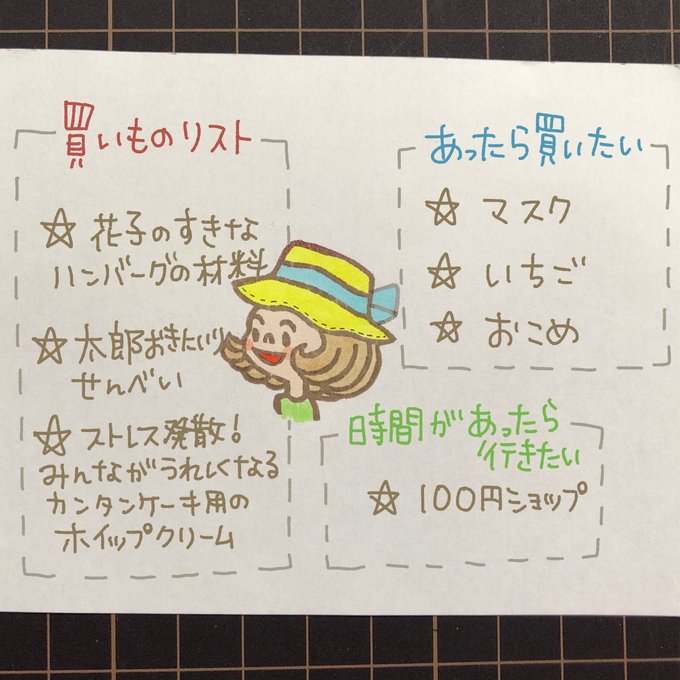 買いものリスト
☆ 花子のすきな
ハンバーグの材料
☆ 太郎おきにいり
せんべい
☆ ストレス発散!
みんながうれしくなる
カンタンケーキ用の
ホイップクリーム
あったら買いたい
☆ マスク
☆ いちご
☆ おこめ
時間があったら
行きたい
☆ 100円ショップ